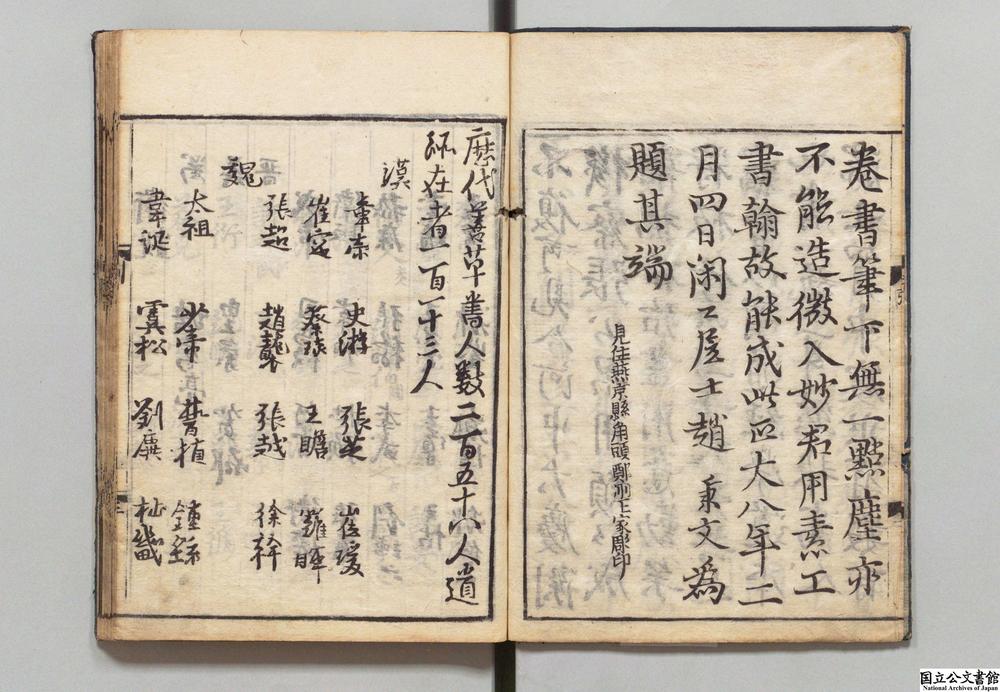 卷書筆下無一點塵亦
不能造微入妙君用素工
書翰故能成此正大八年二
月四日閑〻居士趙秉文爲
題其端
見住燕京縣角頭鄭州王家雕印
歷代善草書人數二百五十六人遺
跡在者一百一十三人
漢
章帝 史游 張芝 崔瑗
崔寔 蔡琰 王瞻 羅暉
張超 趙襲 張越 徐幹
魏
太祖 少帝 曹植 鍾繇
韋誕 虞松 劉廙 杜畿
国立公文書館
National Archives of Japan